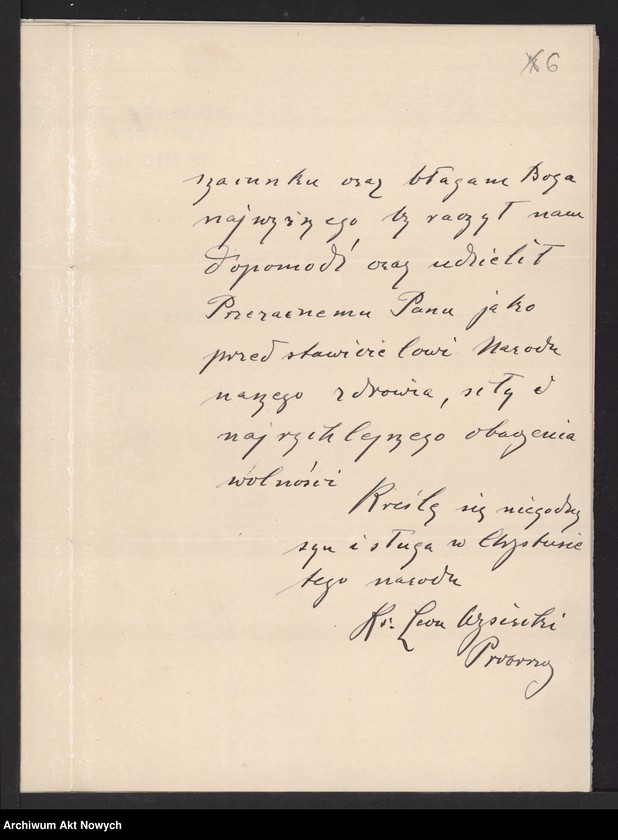 6
szacunku oraz błagam Boga
najwyższego by raczył nam
dopomódź oraz udzielił
Przezacnemu Panu jako
przedstawicielowi Narodu
naszego zdrowia, siły i
najrychlejszego obaczenia
wolności
Kreślę się niegodny
syn i sługa w Chrystusie
tego narodu
Ks. Leon
Proboszcz
Archiwum Akt Nowych